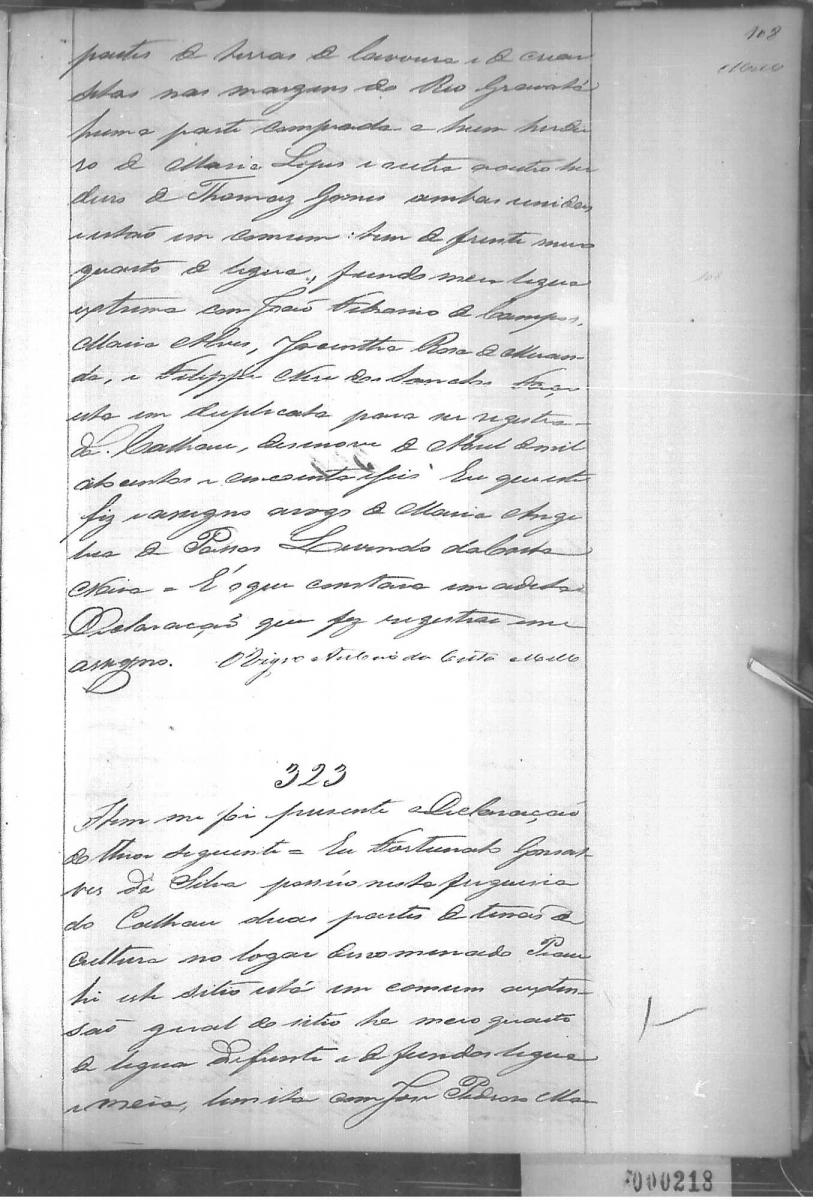 108
Mello
partes de terras de lavoura e de criar
sitas nas margens do Rio Gravatá
huma parte comprada a hum herdei
ro de Maria Lopes e outra a outro her
deiro de Thomaz Gomes ambas unidas
e estão em comum: tem de frente meio
quarto de legua, fundo meia legua
extrema com João de Campos,
Maria Alves, Jacintha Rosa de Miran-
da, e Filippe Neri dos Santos Faço
esta em duplicata para ser registra-
da. Calhau, desenove de Abril de mil
oitocentos e cincoenta e seis Eu que este
fiz e assigno arogo de Maria Ange
lica de Passos da Costa
Neiva = É o que constava em a dita
Declaração que fiz registrar e me
assigno. O Vigro Antonio da Costa Mello
323
Item me foi presente a Declaração
do theor seguinte = Eu Fortunato Gonsal
ves da Silva possúo nesta freguesia
do Calhau duas partes de terras de
cultura no logar denomenado Piau
hi este sitio está em comum a exten-
são geral do sitio he meio quarto
de legua de frente e de fundos legua
e meia, limita com José Pedroso Ma-
000218